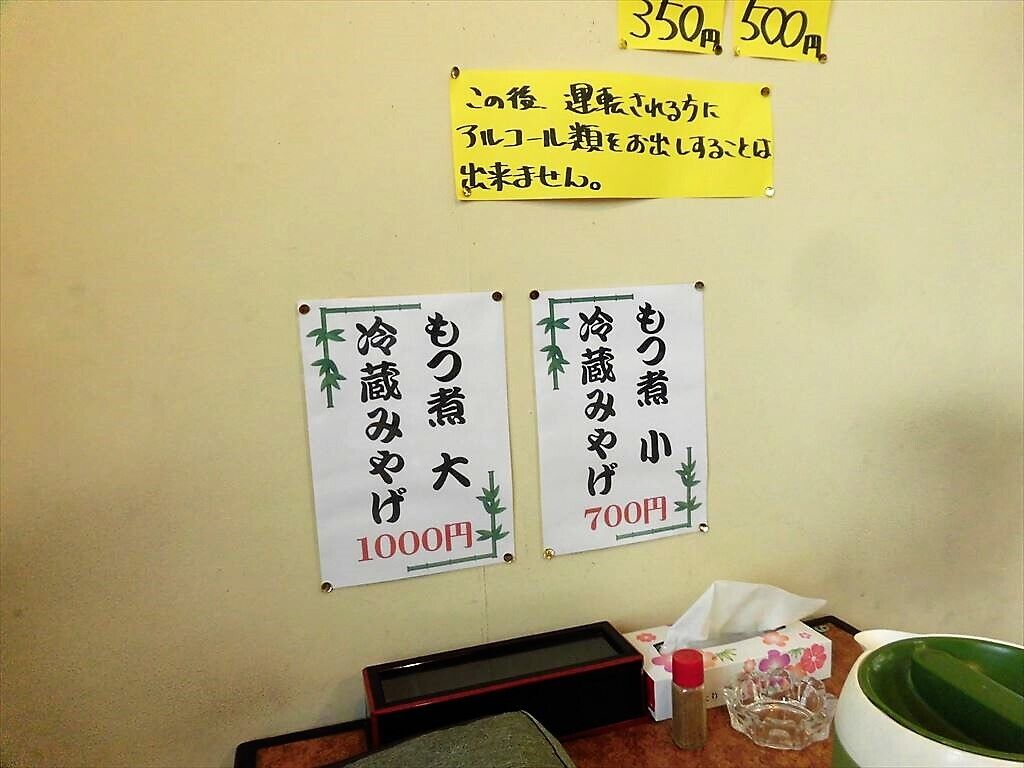 350円
500円
この後、運転される方に
アルコール類をお出しすることは
出来ません。
もつ煮 大
冷蔵みやげ
1000円
もつ煮 小
冷蔵みやげ
700円